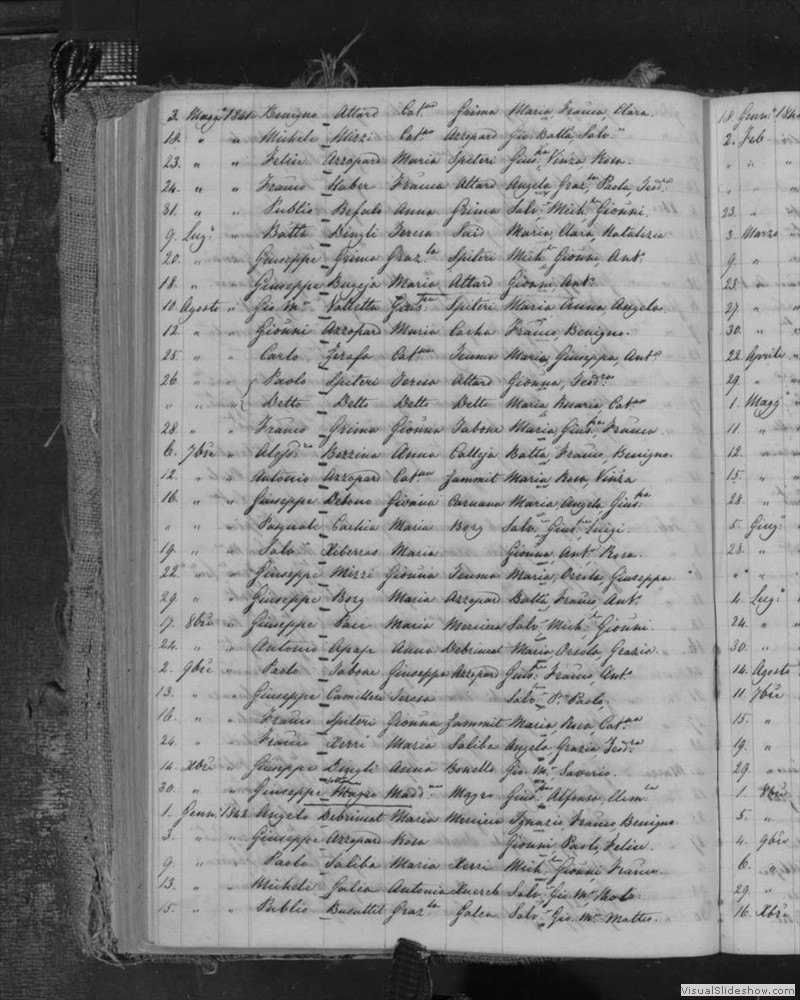 3. Magg.º 1841 Benigno Attard Cat.na Grima Maria, Franca, Clara.
18. " " Michele Mizzi Cat.na Azzopard Gio. Batta, Salv.re
23. " " Felice Azzopard Maria Spiteri Gius.pa Vinza Rosa.
24. " " Franco Haber Franca Attard Angela, Graz.la Paola, Teod.ra
31. " " Publio Befulo Anna Grima Salv.re Mich.le Gionni.
9. Lug.º " Batta Dingli Teresa Said Maria, Clara, Natalizia
20. " " Giuseppe Grima Graz.la Spiteri Mich.le Gionni, Ant.º
18. " " Giuseppe Bugeja Maria Attard Gionni, Ant.º
10. Agosto " Gio. M.a Valletta Gius.pa Spiteri Maria Anna, Angela.
12. " " Gionni Azzopard Maria Cacha Franco, Benigno.
25. " " Carlo Zerafa Cat.na Teuma Maria, Giuseppa, Ant.a
26. " " Paolo Spiteri Teresa Attard Gionna, Teod.ra
" " " Detto Detto Detto Detto Maria, Rosaria, Cat.na
28. " " Franco Grima Gionna Tabone Maria, Gius.pa, Franca
6. 7bre " Alofs.ro Bezzina Anna Calleja Batta, Franco, Benigno.
12. " " Antonio Azzopard Cat.na Zammit Maria, Rosa, Vinza
16. " " Giuseppe Debono Gioanna Caruana Maria, Angela, Gius.pa
" " " Pasquale Cachia Maria Borg Salv.re Gius.pe Luigi.
19. " " Salv.e Xiberras Maria Gionna, Ant.a Rosa.
22. " " Giuseppe Mizzi Gionna Teuma Maria, Orsola, Giuseppa
29. " " Giuseppe Borg Maria Azzopard Batta, Franco, Ant.º
17. 8bre " Giuseppe Pace Maria Mercieca Salv.re Mich.le Gionni.
24. " " Antonio Apap Anna Debrincat Maria, Orsola, Grazia
2. 9bre " Paolo Tabone Giuseppa Azzopard Gius.pe Franco, Ant.º
13. " " Giuseppe Camilleri Teresa Salv.re P. Paolo.
16. " " Franco Spiteri Gionna Zammit Maria, Rosa, Cat.na
24. " " Franco Xerri Maria Saliba Angela, Grazia Teod.ra
14. Xbre " Giuseppe Dingli Anna Bonello Gio. M.a Saverio.
30. " " Giuseppe Magro Madd.na Magro Gius.pe Alfonso, Clem.te
1. Genn.º 1842 Angelo Debrincat Maria Mercieca Ignazio Franco Benigno
3. " " Giuseppe Azzopard Rosa Gionni Paolo, Felice.
9. " " Paolo Saliba Maria Xerri Mich.le Gionni Franco.
13. " " Michele Galea Antonia Xuereb Salv.re Gio. M.a
15. " " Publio Busuttil Graz.la Galea Salv.re Gio. M.a Matteo.
18. Genn.º 184
2. Feb "
" " "
" " "
23. "
3. Marzo
9. "
23. "
27. " "
30. " "
22. Aprile "
29. " "
1. Magg.º "
11. "
12. "
15. "
28. "
5. Giug.º
28. "
" "
4. Lug.º
24. "
30. "
14. Agosto
11. 7bre
15. "
19. "
29. "
1. 8bre
5. "
4. 9bre
6. "
29. "
16. Xbre
VisualSlideshow.com